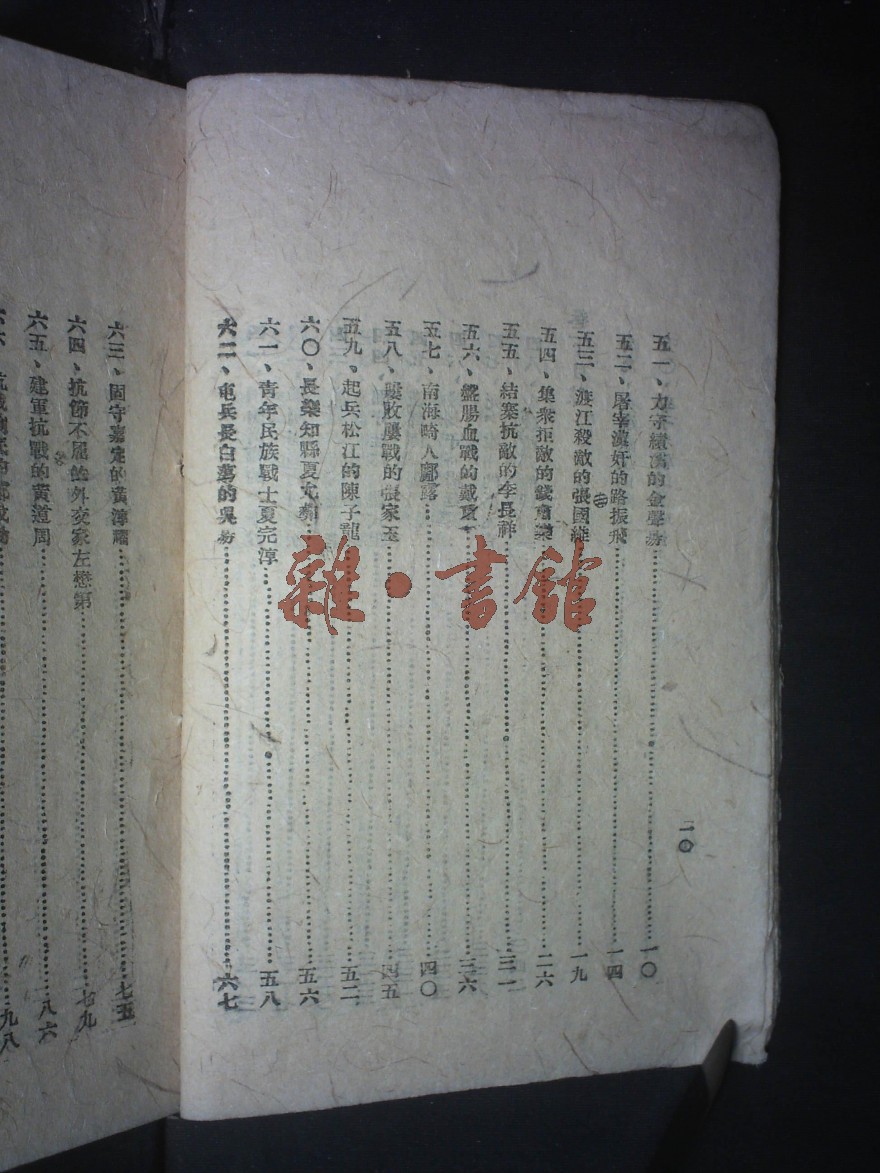 五一、力守績溪的金聲……一〇
五二、屠宰漢奸的路振飛……一四
五三、渡江殺敵的張國維……一九
五四、集衆拒敵的錢肅樂……二六
五五、結寨抗敵的李長祥……三一
五六、盤腸血戰的戴……三六
五七、南海畸人鄺露……四〇
五八、屢敗屢戰的張家玉……四五
五九、起兵松江的陳子龍……五二
六〇、長樂知縣夏允彝……五六
六一、青年民族戰士夏完淳……五八
六二、屯兵長白蕩的吳易……六七
一〇
六三、固守嘉定的黃淳耀……七五
六四、抗節不屈的外交家左懋第……七九
六五、建軍抗戰的黃道周……八六
六六、……九八
雜·書館